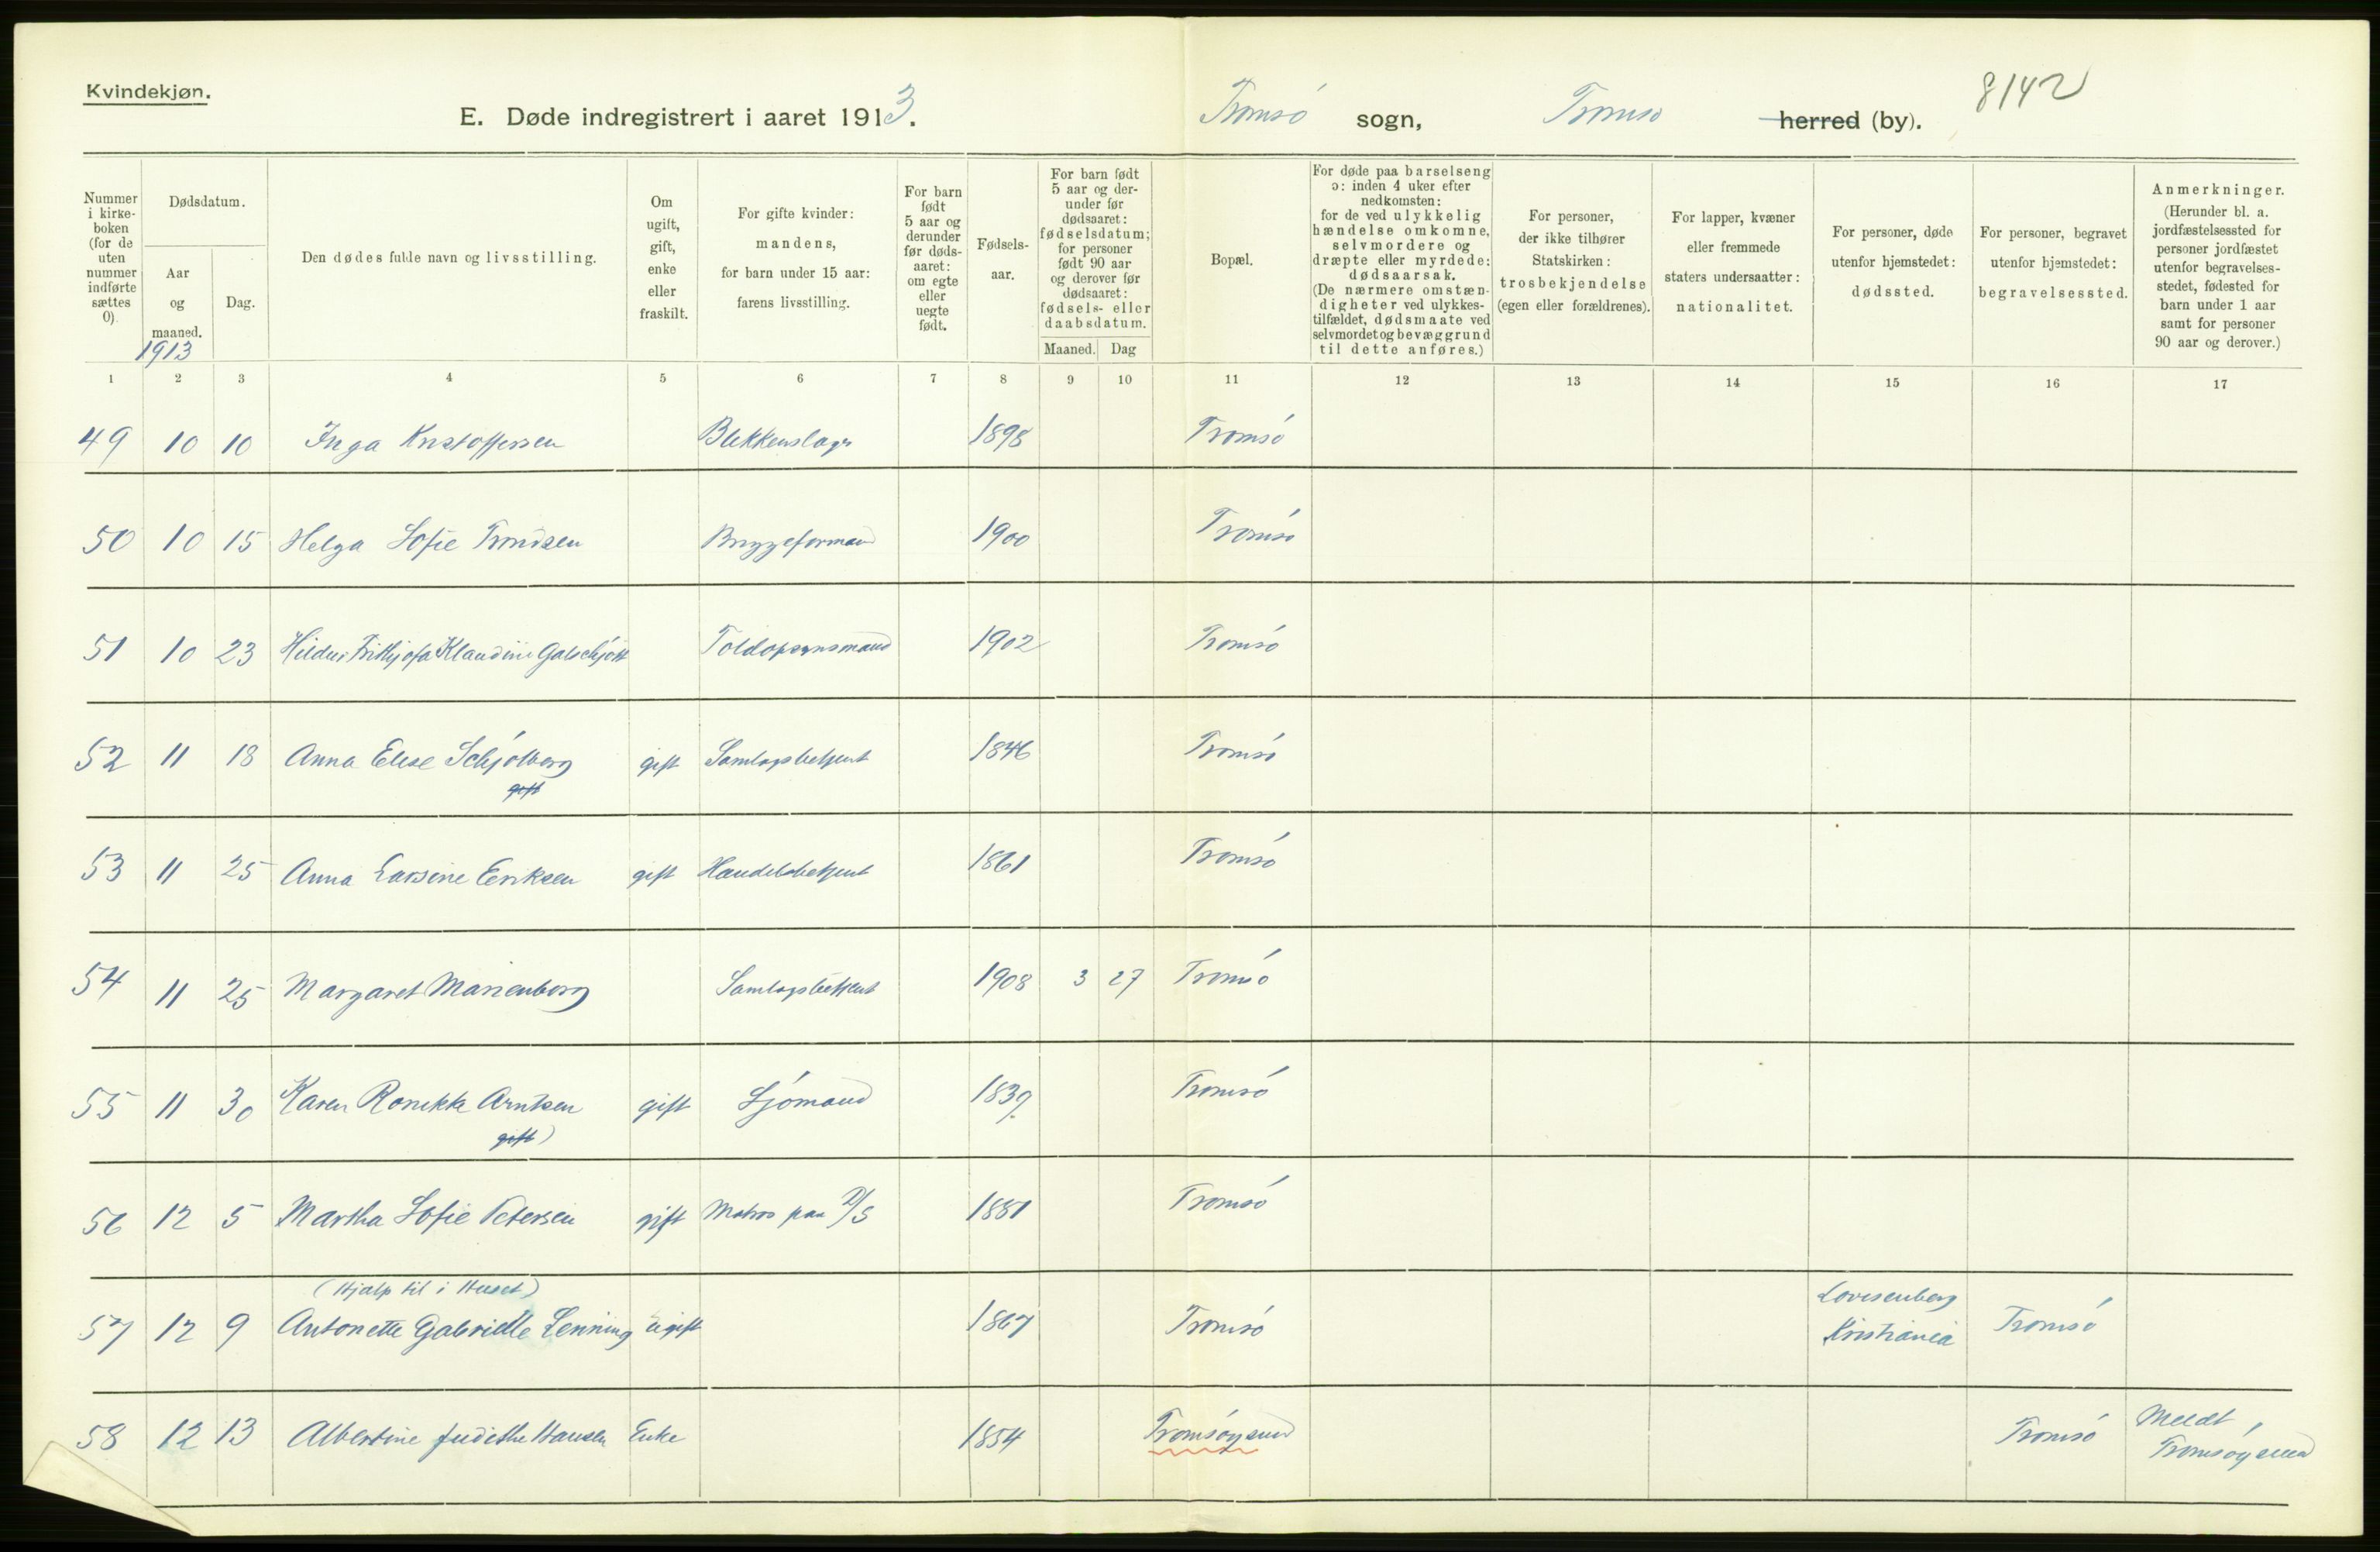 Kvindekjøn.
E. Døde indregistrert i aaret 1913. Tromsó sogn, Tromsø herred (by). 8142
Nummer i kirkeboken (for de uten nummer indførte sættes 0).
Dødsdatum.
Aar og maaned. 1913
Dag.
Den dødes fulde navn og livsstilling.
Om ugift, gift, enke eller fraskilt.
For gifte kvinder: mandens, for barn under 15 aar: farens livsstilling.
For barn født 5 aar og derunder før dødsaaret: om egte eller uegte født.
Fødselsaar.
For barn født 5 aar og derunder før dødsaaret: fødselsdatum; for personer født 90 aar og derover før dødsaaret: fødsels- eller daabsdatum.
Maaned. Dag
Bopæl.
For døde paa barselseng ɔ: inden 4 uker efter nedkomsten: for de ved ulykkelig hændelse omkomne, selvmordere og dræpte eller myrdede: dødsaarsak. (De nærmere omstændigheter ved ulykkestilfældet, dødsmaate ved selvmordet og bevæggrund til dette anføres.)
For personer, der ikke tilhører Statskirken: trosbekjendelse (egen eller forældrenes).
For lapper, kvæner eller fremmede staters undersaatter: nationalitet.
For personer, døde utenfor hjemstedet: dødssted.
For personer, begravet utenfor hjemstedet: begravelsessted.
Anmerkninger. (Herunder bl. a. jordfæstelsessted for personer jordfæstet utenfor begravelsesstedet, fødested for barn under 1 aar samt for personer 90 aar og derover.)
1 2 3 4 5 6 7 8 9 10 11 12 13 14 15 16 17
49 10 10 Inga Kristoffersen Blekkenslager 1898 Tromsó
50 10 15 Helga Sofie Trondsen Bryggeformand 1900 Tromsó
51 10 23 Hildur Frithjofa Klaudine Galschjøtt Toldopsynsmand 1902 Tromsó
52 11 18 Anna Elise Schjólberg gift Samlagsbetjent 1846 Tromsó
gift
53 11 25 Anna Larsine Eriksen gift Handelsbetjent 1861 Tromsó
54 11 25 Margaret Marienborg Samlagsbetjent 1908 3 27 Tromsó
55 11 30 Karen Ronikke Arntsen gift Sjómand 1839 Tromsó
gift)
56 12 5 Martha Sofie Petersen gift Matros paa D/S 1881 Tromsó
(Hjalp til i Huset)
57 12 9 Antonette Gabrielle Lenning Ugift 1867 Tromsó Lovisenberg Kristiania Tromsó
58 12 13 Albertine Judithe Hansen Enke 1854 Tromsóysund Tromsó Meldt, Tromsóysund